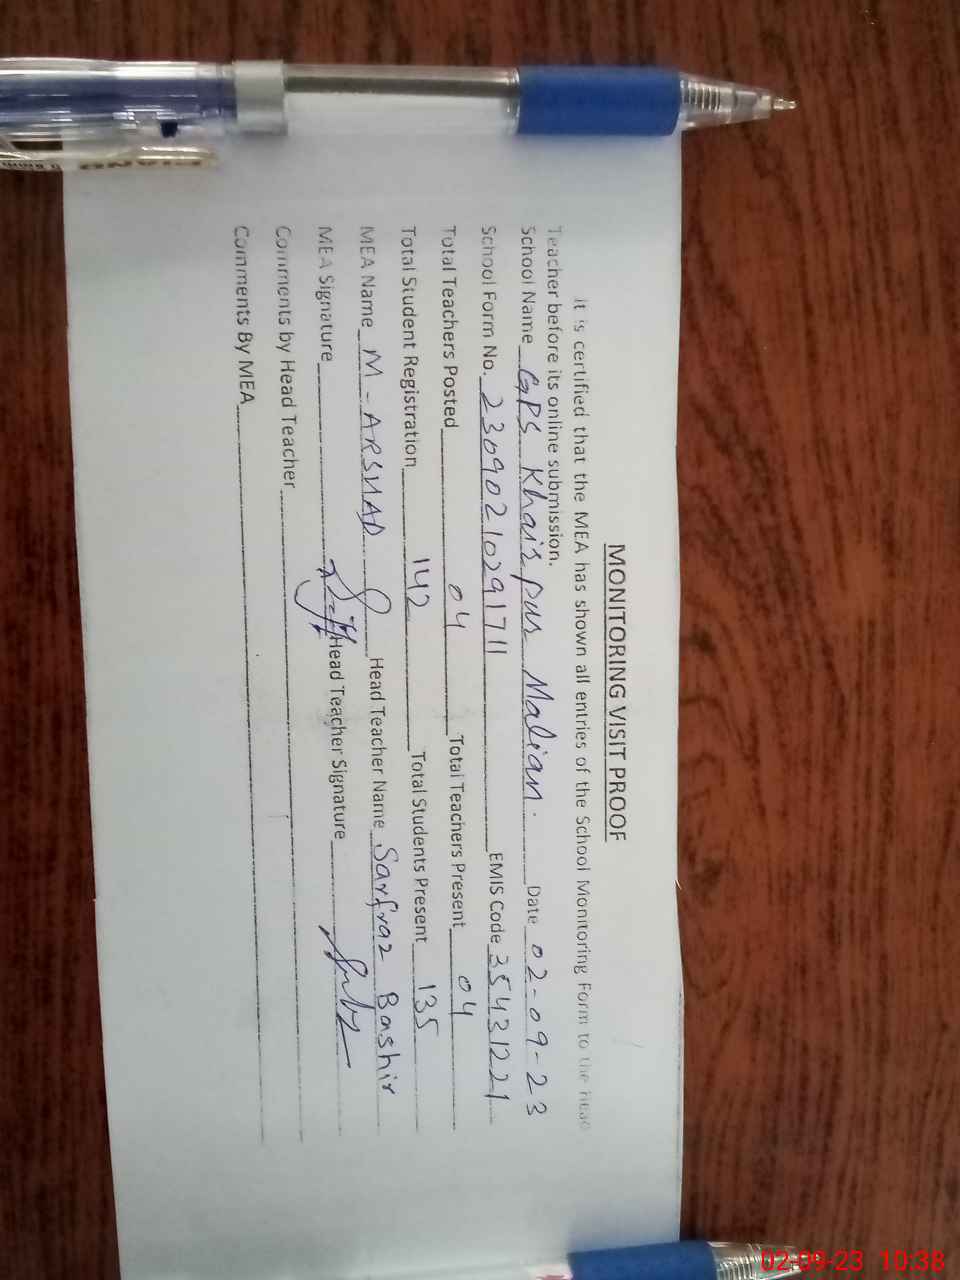 MONITORING VISIT PROOF
It is certified that the MEA has shown all entries of the School Monitoring Form to the head
Teacher before its online submission.
School Name GPS Khairpur Malian. Date 02-09-23
School Form No. 23090210291711 EMIS Code 35431221
Total Teachers Posted 04 Total Teachers Present 04
Total Student Registration 142 Total Students Present 135
MEA Name M-ARSHAD Head Teacher Name Sarfraz Bashir
MEA Signature Head Teacher Signature
Comments by Head Teacher
Comments By MEA
02-09-23 10:38